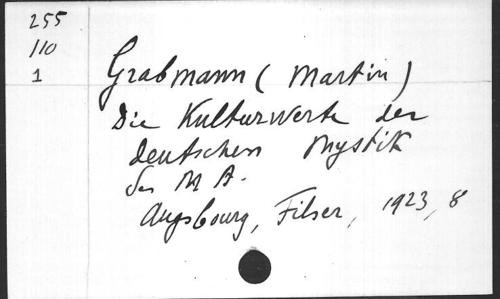 255
110
1
Grabmann (Martin)
Die Kulturwerte der
deutschen Mystik
des M A.
Augsbourg, Filser, 1923, 8